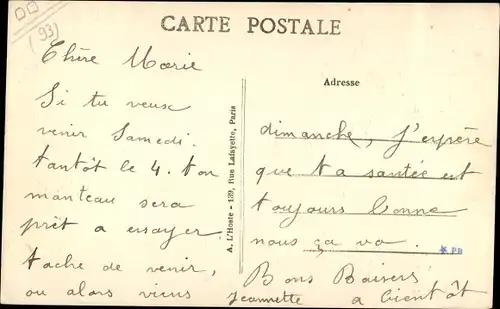 (93)
CARTE POSTALE
Chère Marie
Si tu veux
venir Samedi
tantôt le 4. ton
manteau sera
prêt a essayer
tache de venir,
ou alors viens
A. L'Hoste - 139, Rue Lafayette, Paris
Adresse
dimanche, j'espère
que ta santée est
toujours bonne
nous ça va.
*PB
Bons Baisers
Jeannette a bientôt